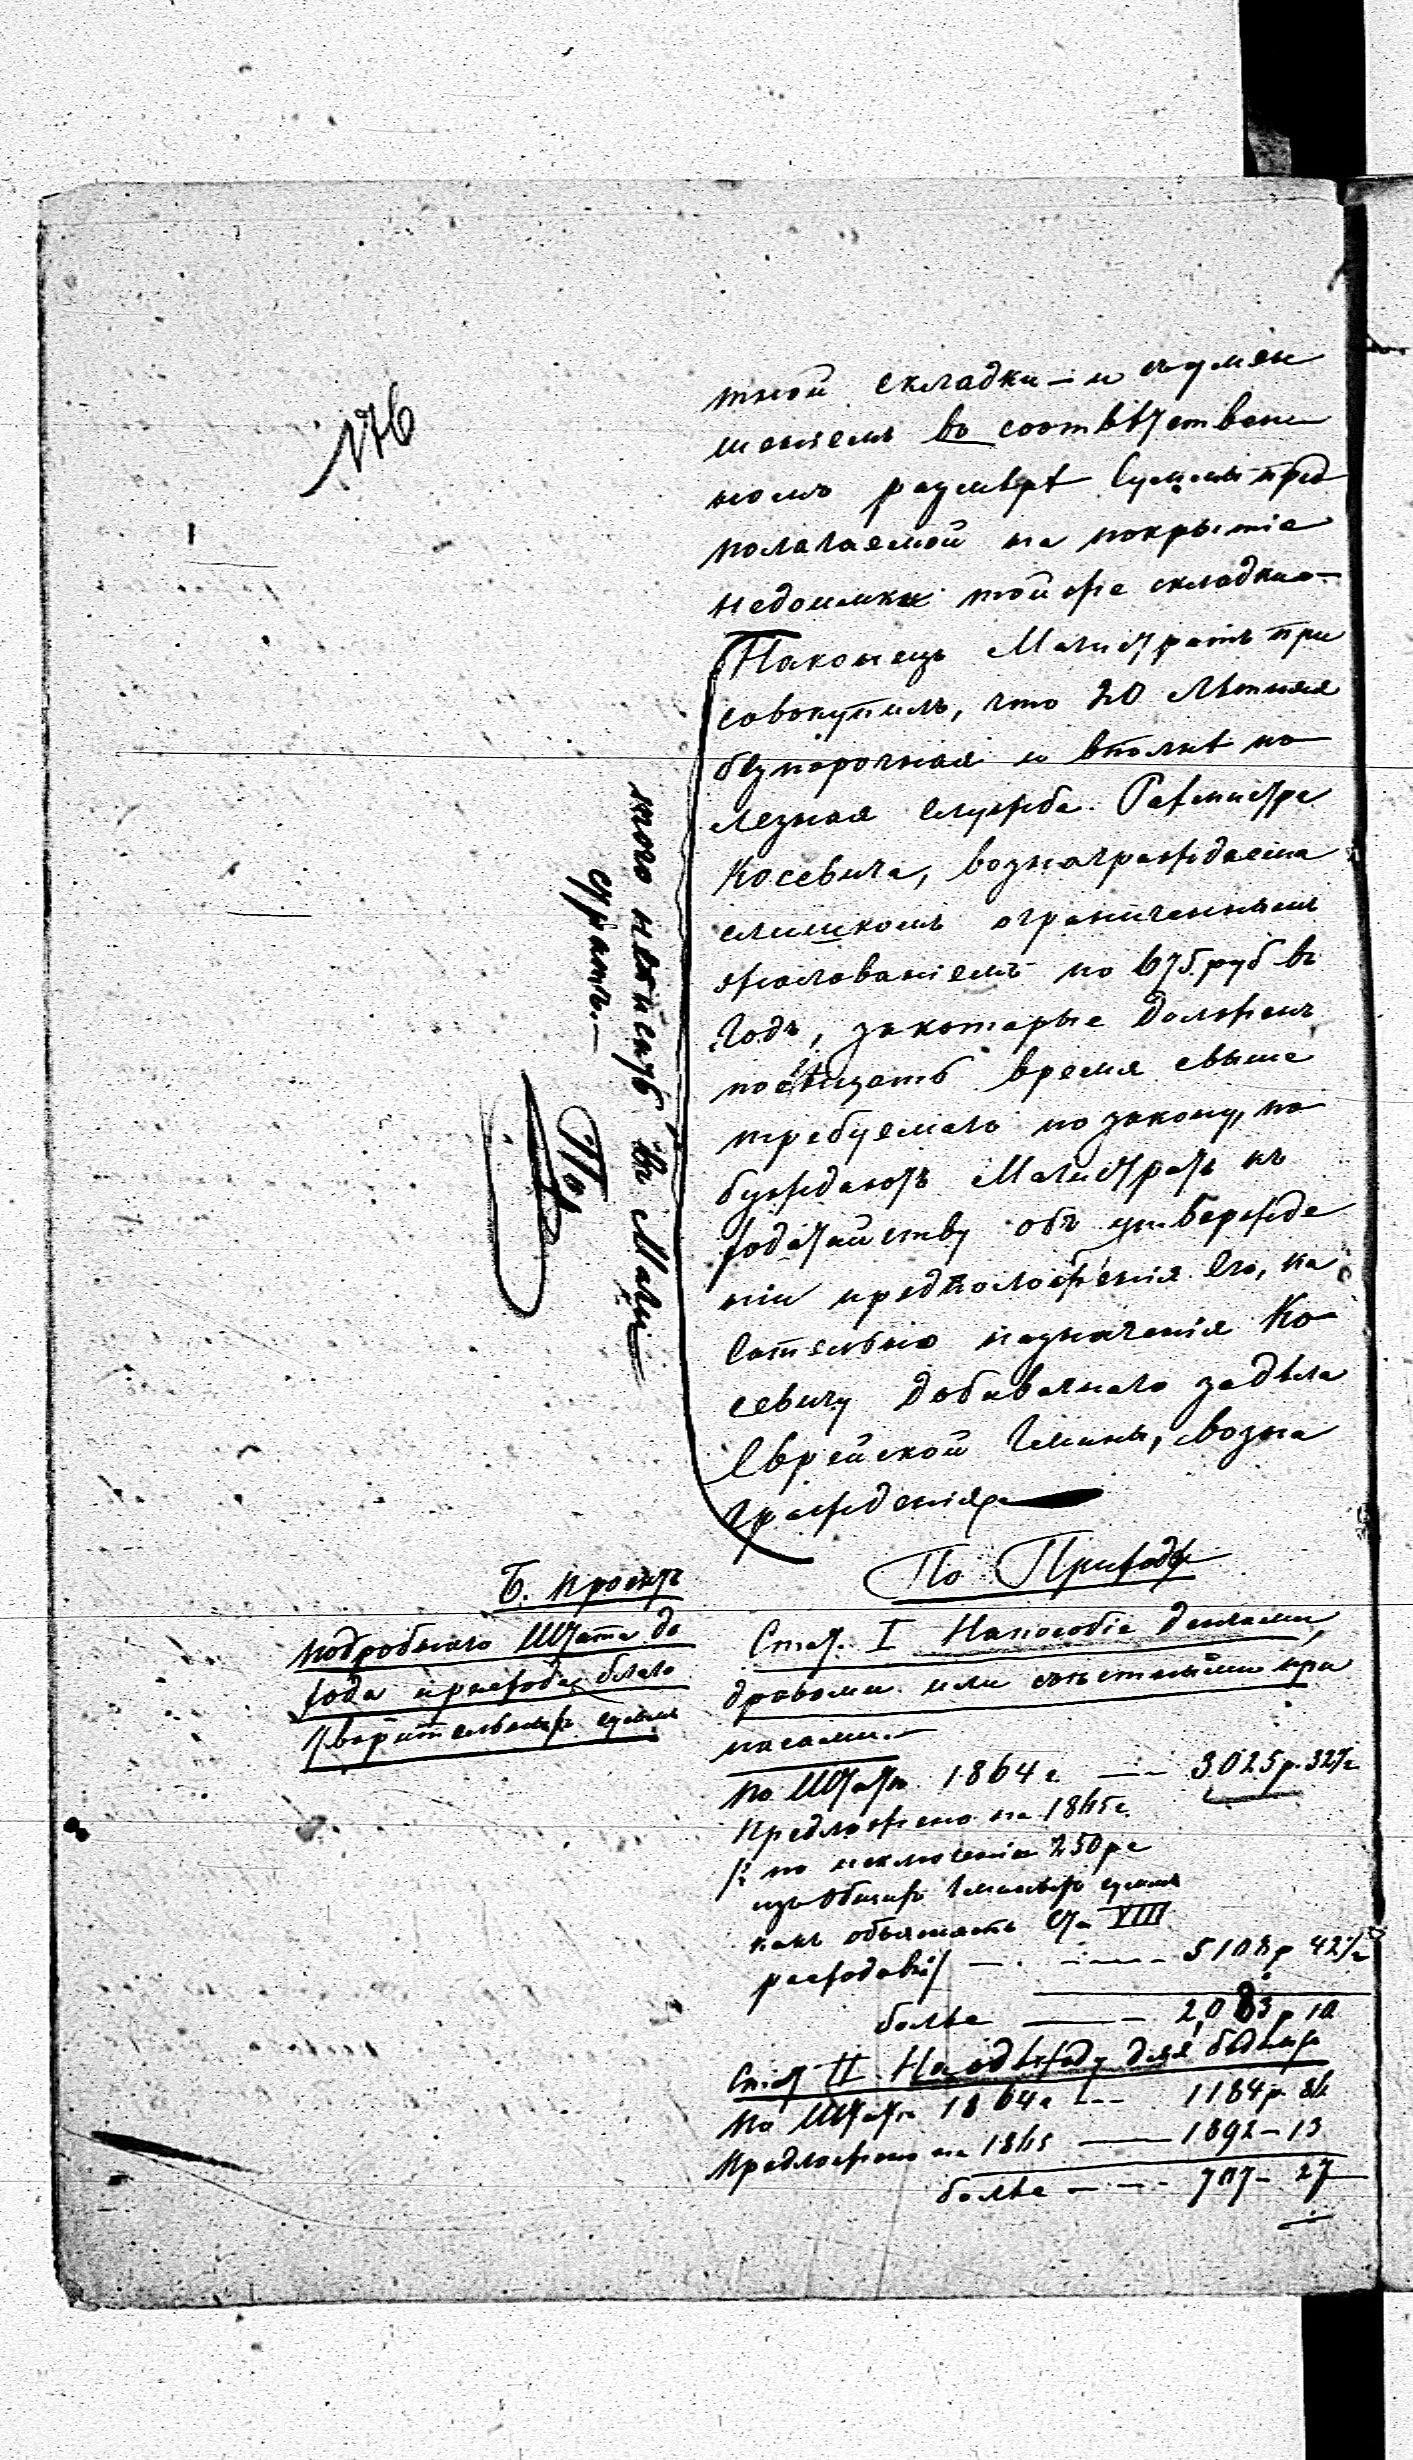 176
тной складки – и съ умень
шеніемъ въ соотвѣтствен
номъ размѣрѣ Суммы пред
полагаемой на покрытіе
недоимки той же складки –
Наконецъ Магистратъ при
совокупилъ, что 20 лѣтняя
безпорочная и вполнѣ по
лезная служба Ратмистра
Косевича, вознаграждаема
слишкомъ ограниченнымъ
жалованіемъ по 675 руб въ
годъ, за которые долженъ
посвящать время свыше
требуемаго по закону, по
буждаютъ Магистратъ къ
ходатайству объ утвержде
ніи предположенія его, ка
сательно назначенія Ко
севичу добавочнаго за дѣла
Еврейской Гмины, возна
гражденія
того не писать въ Маги
стратъ. –
Б. Проектъ
подробнаго Штата до
хода и расхода благо
творительныхъ суммъ
По Приходу
Стат. I На пособіе деньгами,
дровами или съѣстными при
пасами. –
По Штату 1864 г. — 3025 р. 32½
Предложено на 1865 г.
/: по исключеніи 250 рс
изъ общихъ Гминныхъ суммъ
какъ объяснять Ст. VIII
расходовъ :/ — . — 5108 р 42½
болѣе — 2,083 р 10
Стат II На одежду для бѣдныхъ
По Штату 1864 г — 1184 р. 86
Предложено на 1865 — 1892 – 13
болѣе — 707 – 27